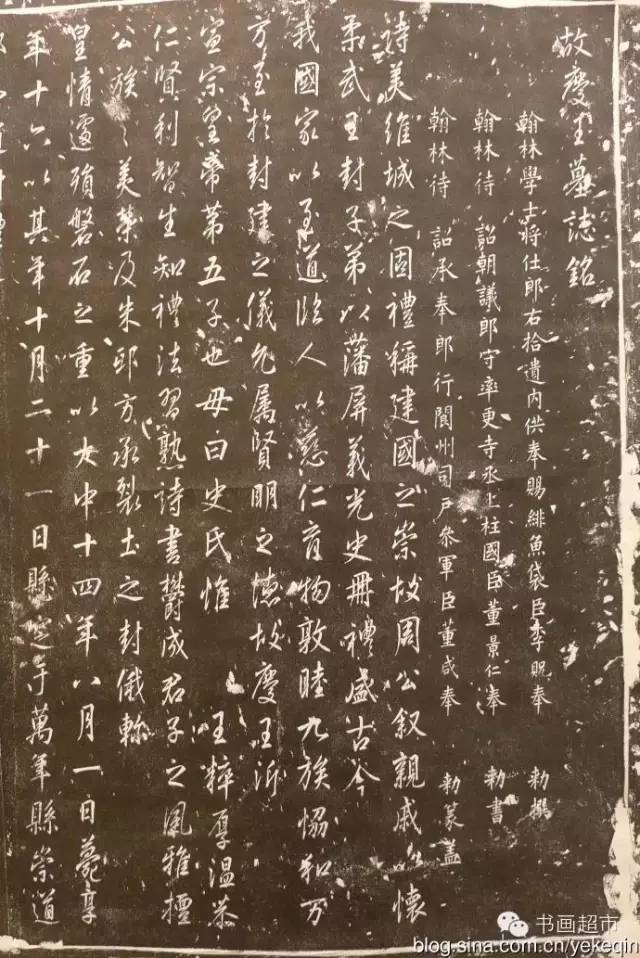 故慶王墓誌銘
翰林學士將仕郎右拾遺內供奉賜緋魚袋臣李貺奉 勅撰
翰林待 詔朝議郎守率更寺丞上柱國臣董景仁奉 勅書
翰林待 詔承奉郎行閬州司戶叅軍臣董咸奉 勅篆蓋
詩美維城之固禮稱建國之崇故周公叙親戚以懷
柔武王封子弟以藩屏義光史冊禮盛古今
我國家以至道臨人以慈仁育物敦睦九族恊和万
方至於封建之儀允属賢明之德故慶王沂
宣宗皇帝第五子也母曰史氏惟 王粹厚溫恭
仁賢利智生知禮法習熟詩書欝成君子之風雅擅
公族之美榮及朱邸方承裂土之封俄軫
皇情遽殞磐石之重以大中十四年八月一日薨享
年十六以其年十月二十一日縣窆于萬年縣崇道
书画超市
blog.sina.com.cn/yekeqin